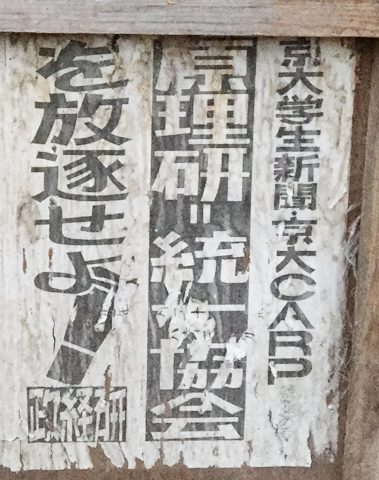 京大学生新聞・京大CARP
原理研＝統一協会
を放逐せよ！
政経研